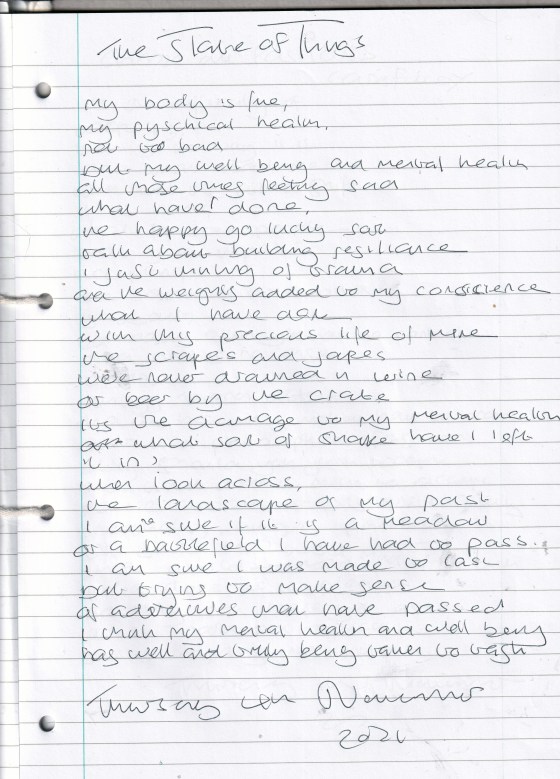 The State of Things
my body is fine,
my pyschical health,
not too bad
but my well being and mental health
all those times feeling sad
what have I done,
the happy go lucky sort
talk about building resiliance
i just thinking of trauma
and the weights added to my conscience
what I have done
with this precious life of mine
the scrapes and japes
were never drowned in wine
or beer by the crate
its the damage to my mental health
what sort of shape have I left
it in?
when i look across,
the landscape of my past
I am sure if it is a meadow
or a battlefield I have had to pass..
I am sure I was made to last
but trying to make sense
of adventures that have passed
I think my mental health and well being
has well and truly being taken to task
Thursday November
2021